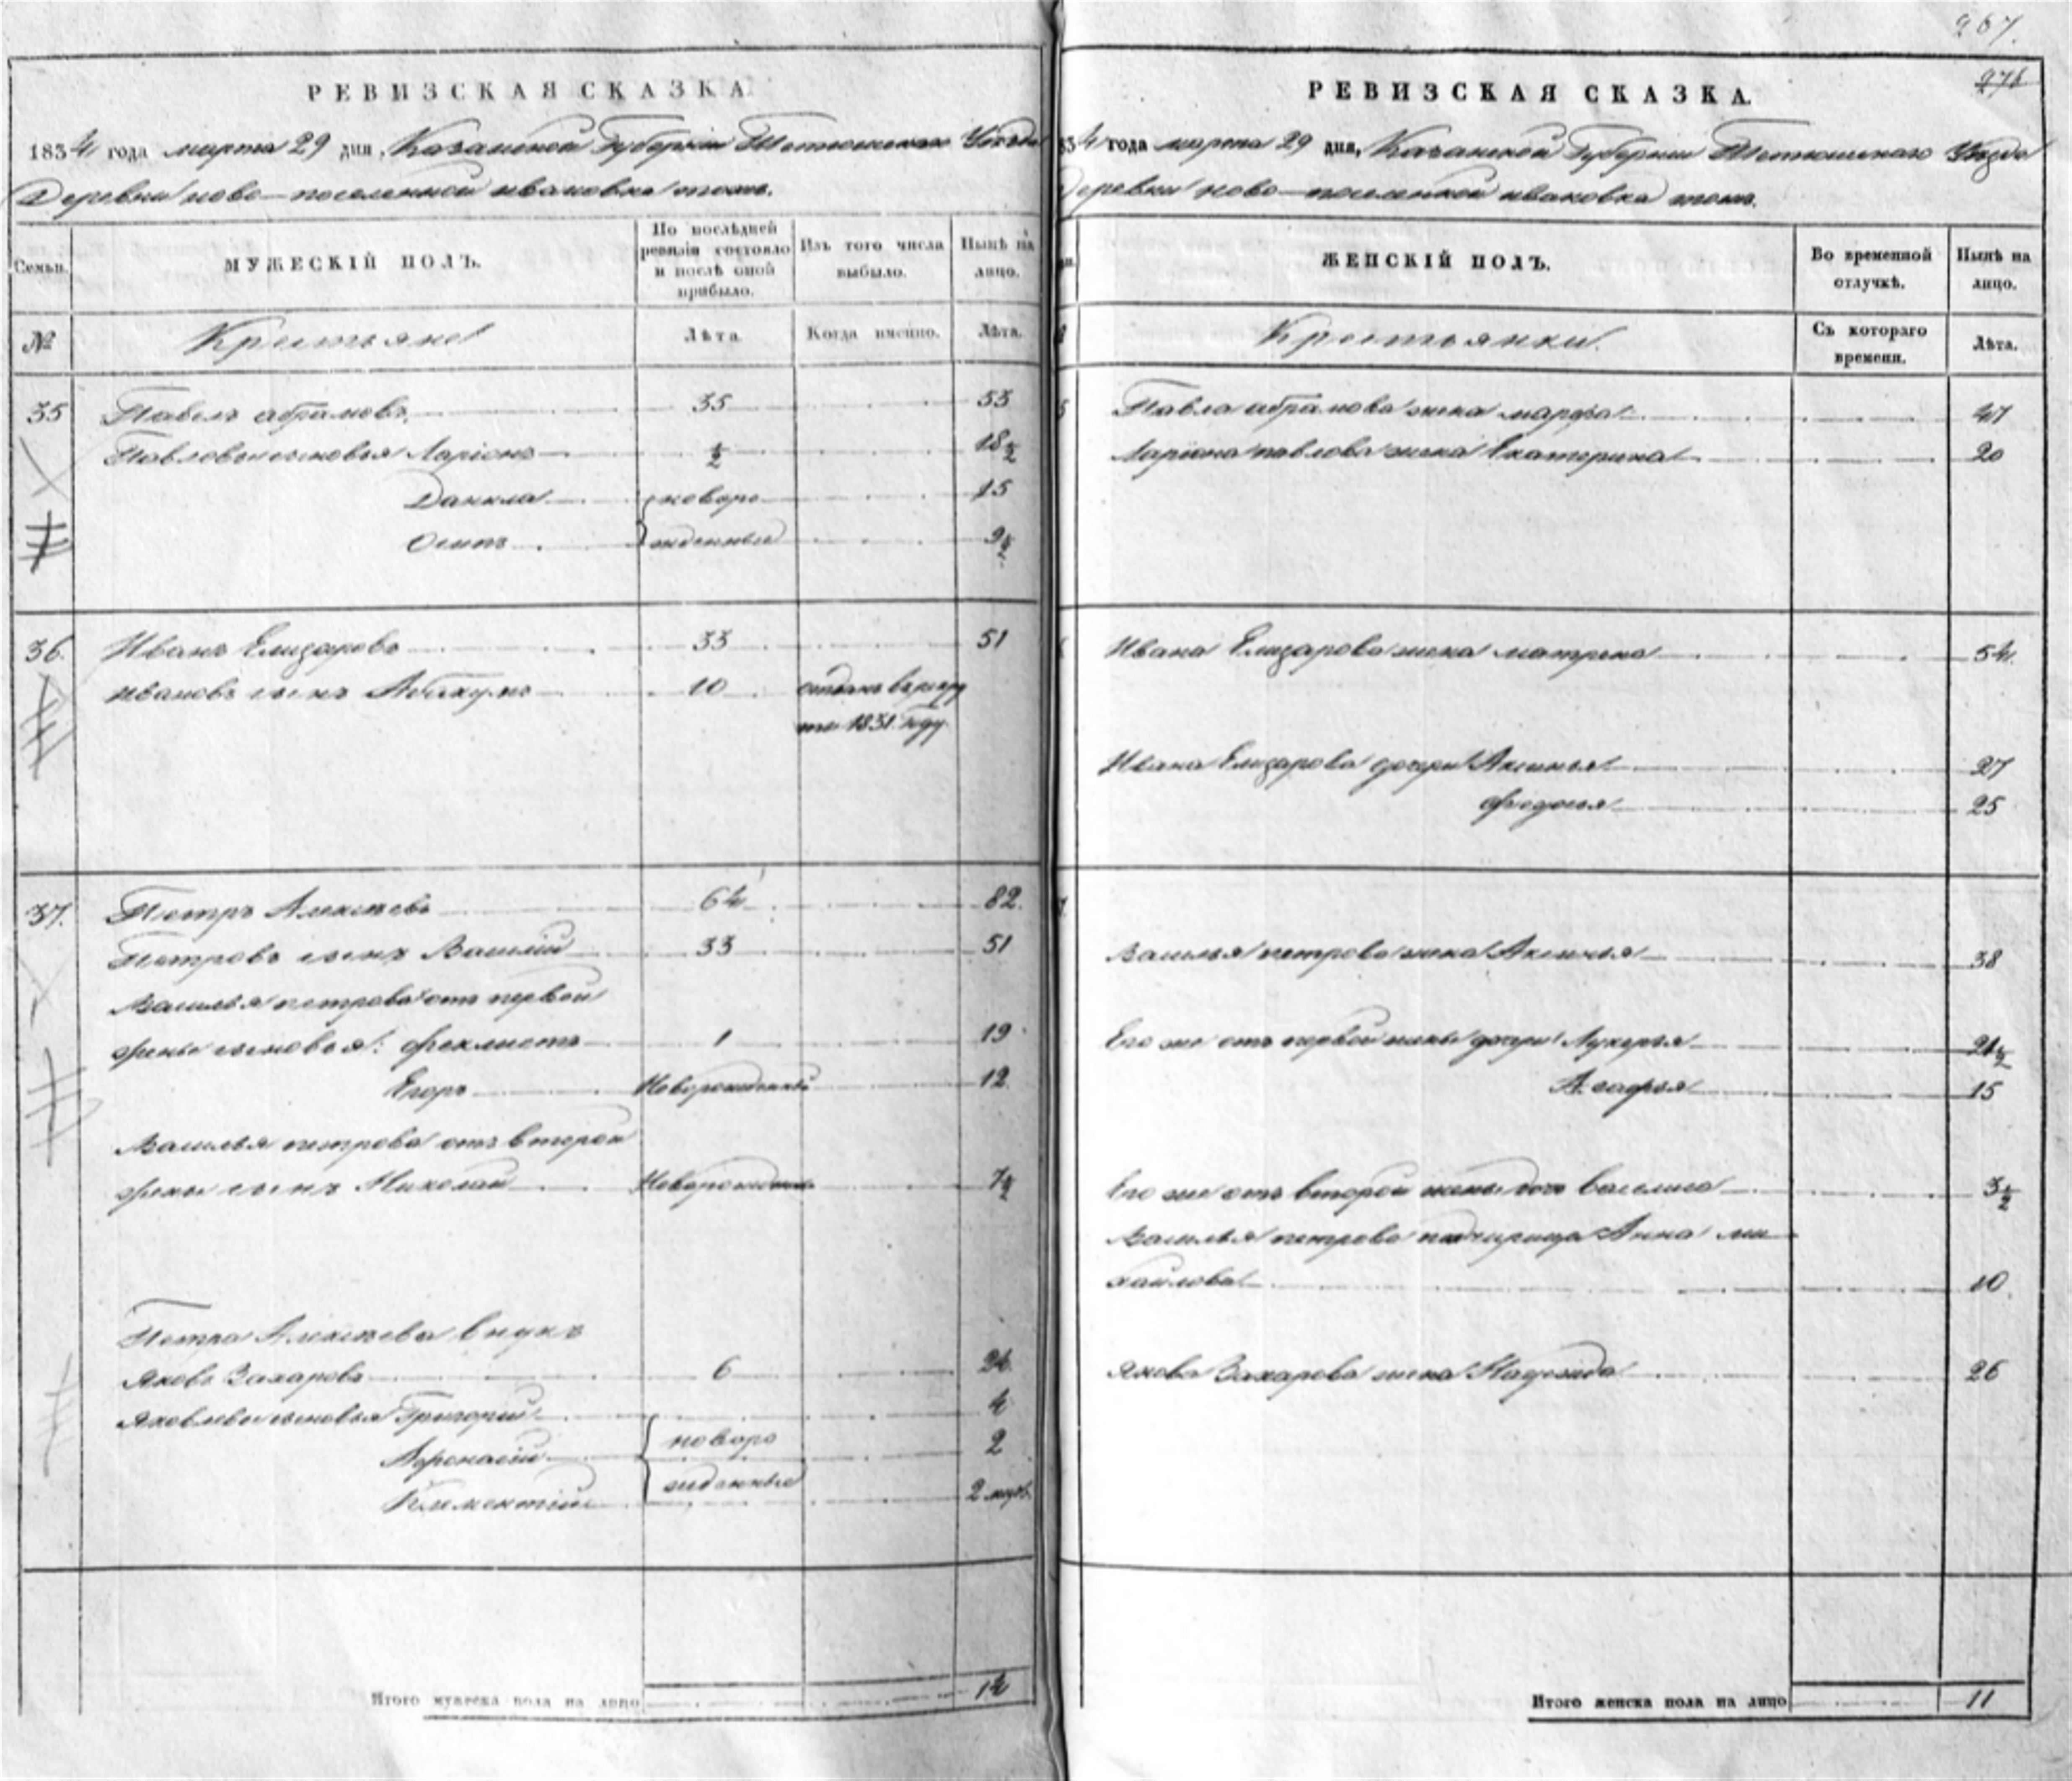 267.
271
РЕВИЗСКАЯ СКАЗКА
1834 года марта 29 дня, Казанской Губернии Тетюшскаго Уезда
Деревни ново-поселенной ивановки тожъ.
Семьи.
МУЖЕСКІЙ ПОЛЪ.
По послѣдней ревизіи состояло и послѣ оной прибыло.
Изъ того числа выбыло.
Нынѣ на лицо.
№
Крестьяне
Лѣта.
Когда именно.
Лѣта.
35 Павелъ абрамовъ 35 53
Павловы сыновья Ларіонъ ½ 18½
Данила новоро 15
Осипъ жденные 9½
36. Иванъ Елизаровъ 33 51
ивановъ сынъ Абакумъ 10 отданъ въ рекру
ты 1831 году
37. Петръ Алексѣевъ 64 82.
Петровъ сынъ Василій 33 51
Василья петрова отъ первой
жены сыновья: феклистъ 1 19
Егоръ Новорожденный 12
Василья петрова отъ второй
жены сынъ Николай Новорожденный 7½
Петра Алексѣева внукъ
Яковъ Захаровъ 6 24
Яковлевы сыновья Григорій 4
Афонасій новоро 2
Климентій жденные 2 мцов.
Итого мужеска пола на лицо 14
РЕВИЗСКАЯ СКАЗКА.
34 года марта 29 дня, Казанской Губернии Тетюшскаго Уезда
Деревни ново-поселенной ивановка тожъ.
ЖЕНСКІЙ ПОЛЪ.
Во временной отлучкѣ.
Нынѣ на лицо.
Крестьянки.
Съ котораго времени.
Лѣта.
Павла абрамова жена марфа 47
Ларіона павлова жена Екатерина 20
Ивана Елизарова жена матрена 54.
Ивана Елизарова дочери Аксинья 27
федосья 25
Василья петрова жена Аксинья 38
Его же отъ первой жены дочери Лукерья 21½
Агафья 15
Его же отъ второй жены дочь василиса 3½
Василья петрова падчерица Анна ми
хайлова 10.
Якова Захарова жена Надежда 26
Итого женска пола на лицо 11